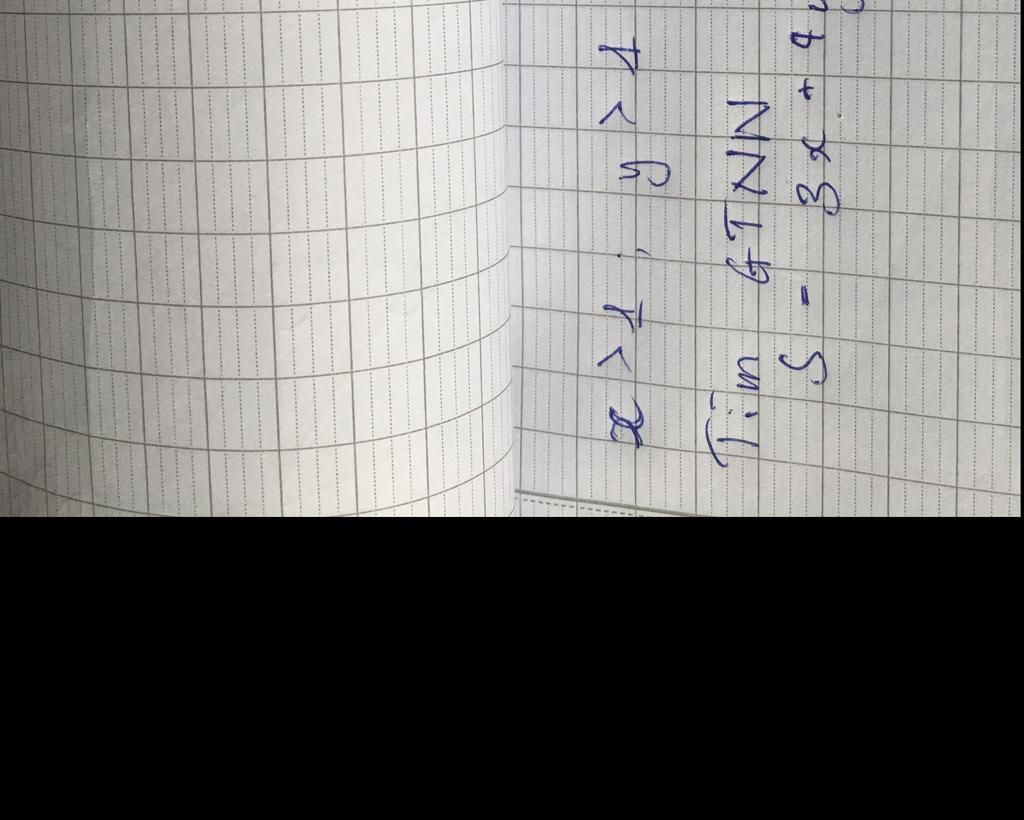 x > 1, y > 1
Tìm GTNN
S = 3x + 4y